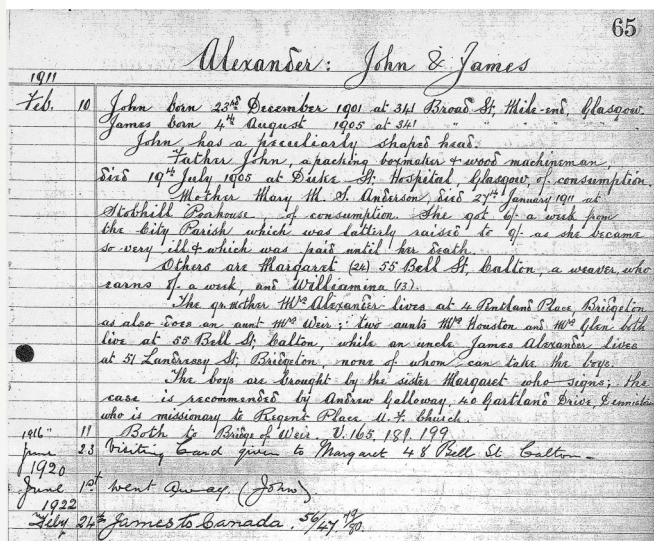 65
Alexander: John & James
1911
Feb. 10 John born 23rd December 1901 at 341 Broad St, Mile-end, Glasgow.
James born 4th August 1905 at 341 " " " "
John has a peculiarly shaped head.
Father John, a packing boxmaker & wood machineman,
died 19th July 1905 at Duke St. Hospital, Glasgow, of consumption.
Mother Mary M. S. Anderson, died 27th January 1911 at
Stobhill Poorhouse, of consumption. She got 6/- a week from
the City Parish which was latterly raised to 9/- as she became
so very ill & which was paid until her death.
Others are Margaret (24) 55 Bell St, Calton, a weaver, who
earns 8/- a week, and Williamina (13).
The gr. mother Mrs Alexander lives at 4 Pentland Place, Bridgeton
as also does an aunt Mrs Weir; two aunts Mrs Houston and Mrs Glen both
live at 55 Bell St, Calton, while an uncle James Alexander lives
at 51 Landressy St, Bridgeton, none of whom can take the boys.
The boys are brought by the sister Margaret who signs; the
case is recommended by Andrew Galloway, 40 Gartland Drive, Dennistoun
who is missionary to Regent Place U. F. Church.
" 11 Both to Bridge of Weir. V. 165, 189, 199.
1916
June 23 Visiting Card given to Margaret 48 Bell St. Calton
1920
June 1st went away (John)
1922
Feby 24th James to Canada. 56/47 79/80.